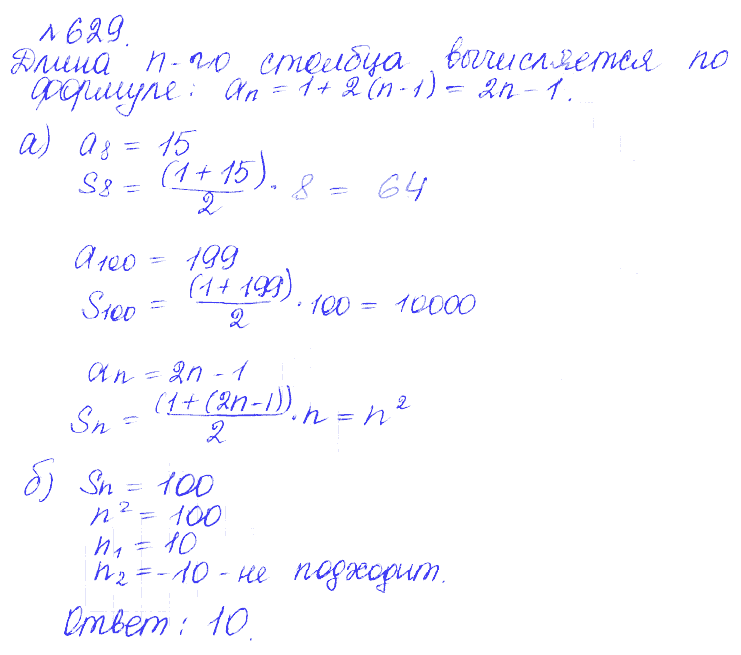 №629.
Длина n-го столбца вычисляется по
формуле: aₙ = 1 + 2(n-1) = 2n - 1.
а) a₈ = 15
S₈ = (1 + 15)/2 · 8 = 64
a₁₀₀ = 199
S₁₀₀ = (1 + 199)/2 · 100 = 10000
aₙ = 2n - 1
Sₙ = (1 + (2n-1))/2 · n = n²
б) Sₙ = 100
n² = 100
n₁ = 10
n₂ = -10 - не подходит.
Ответ: 10.